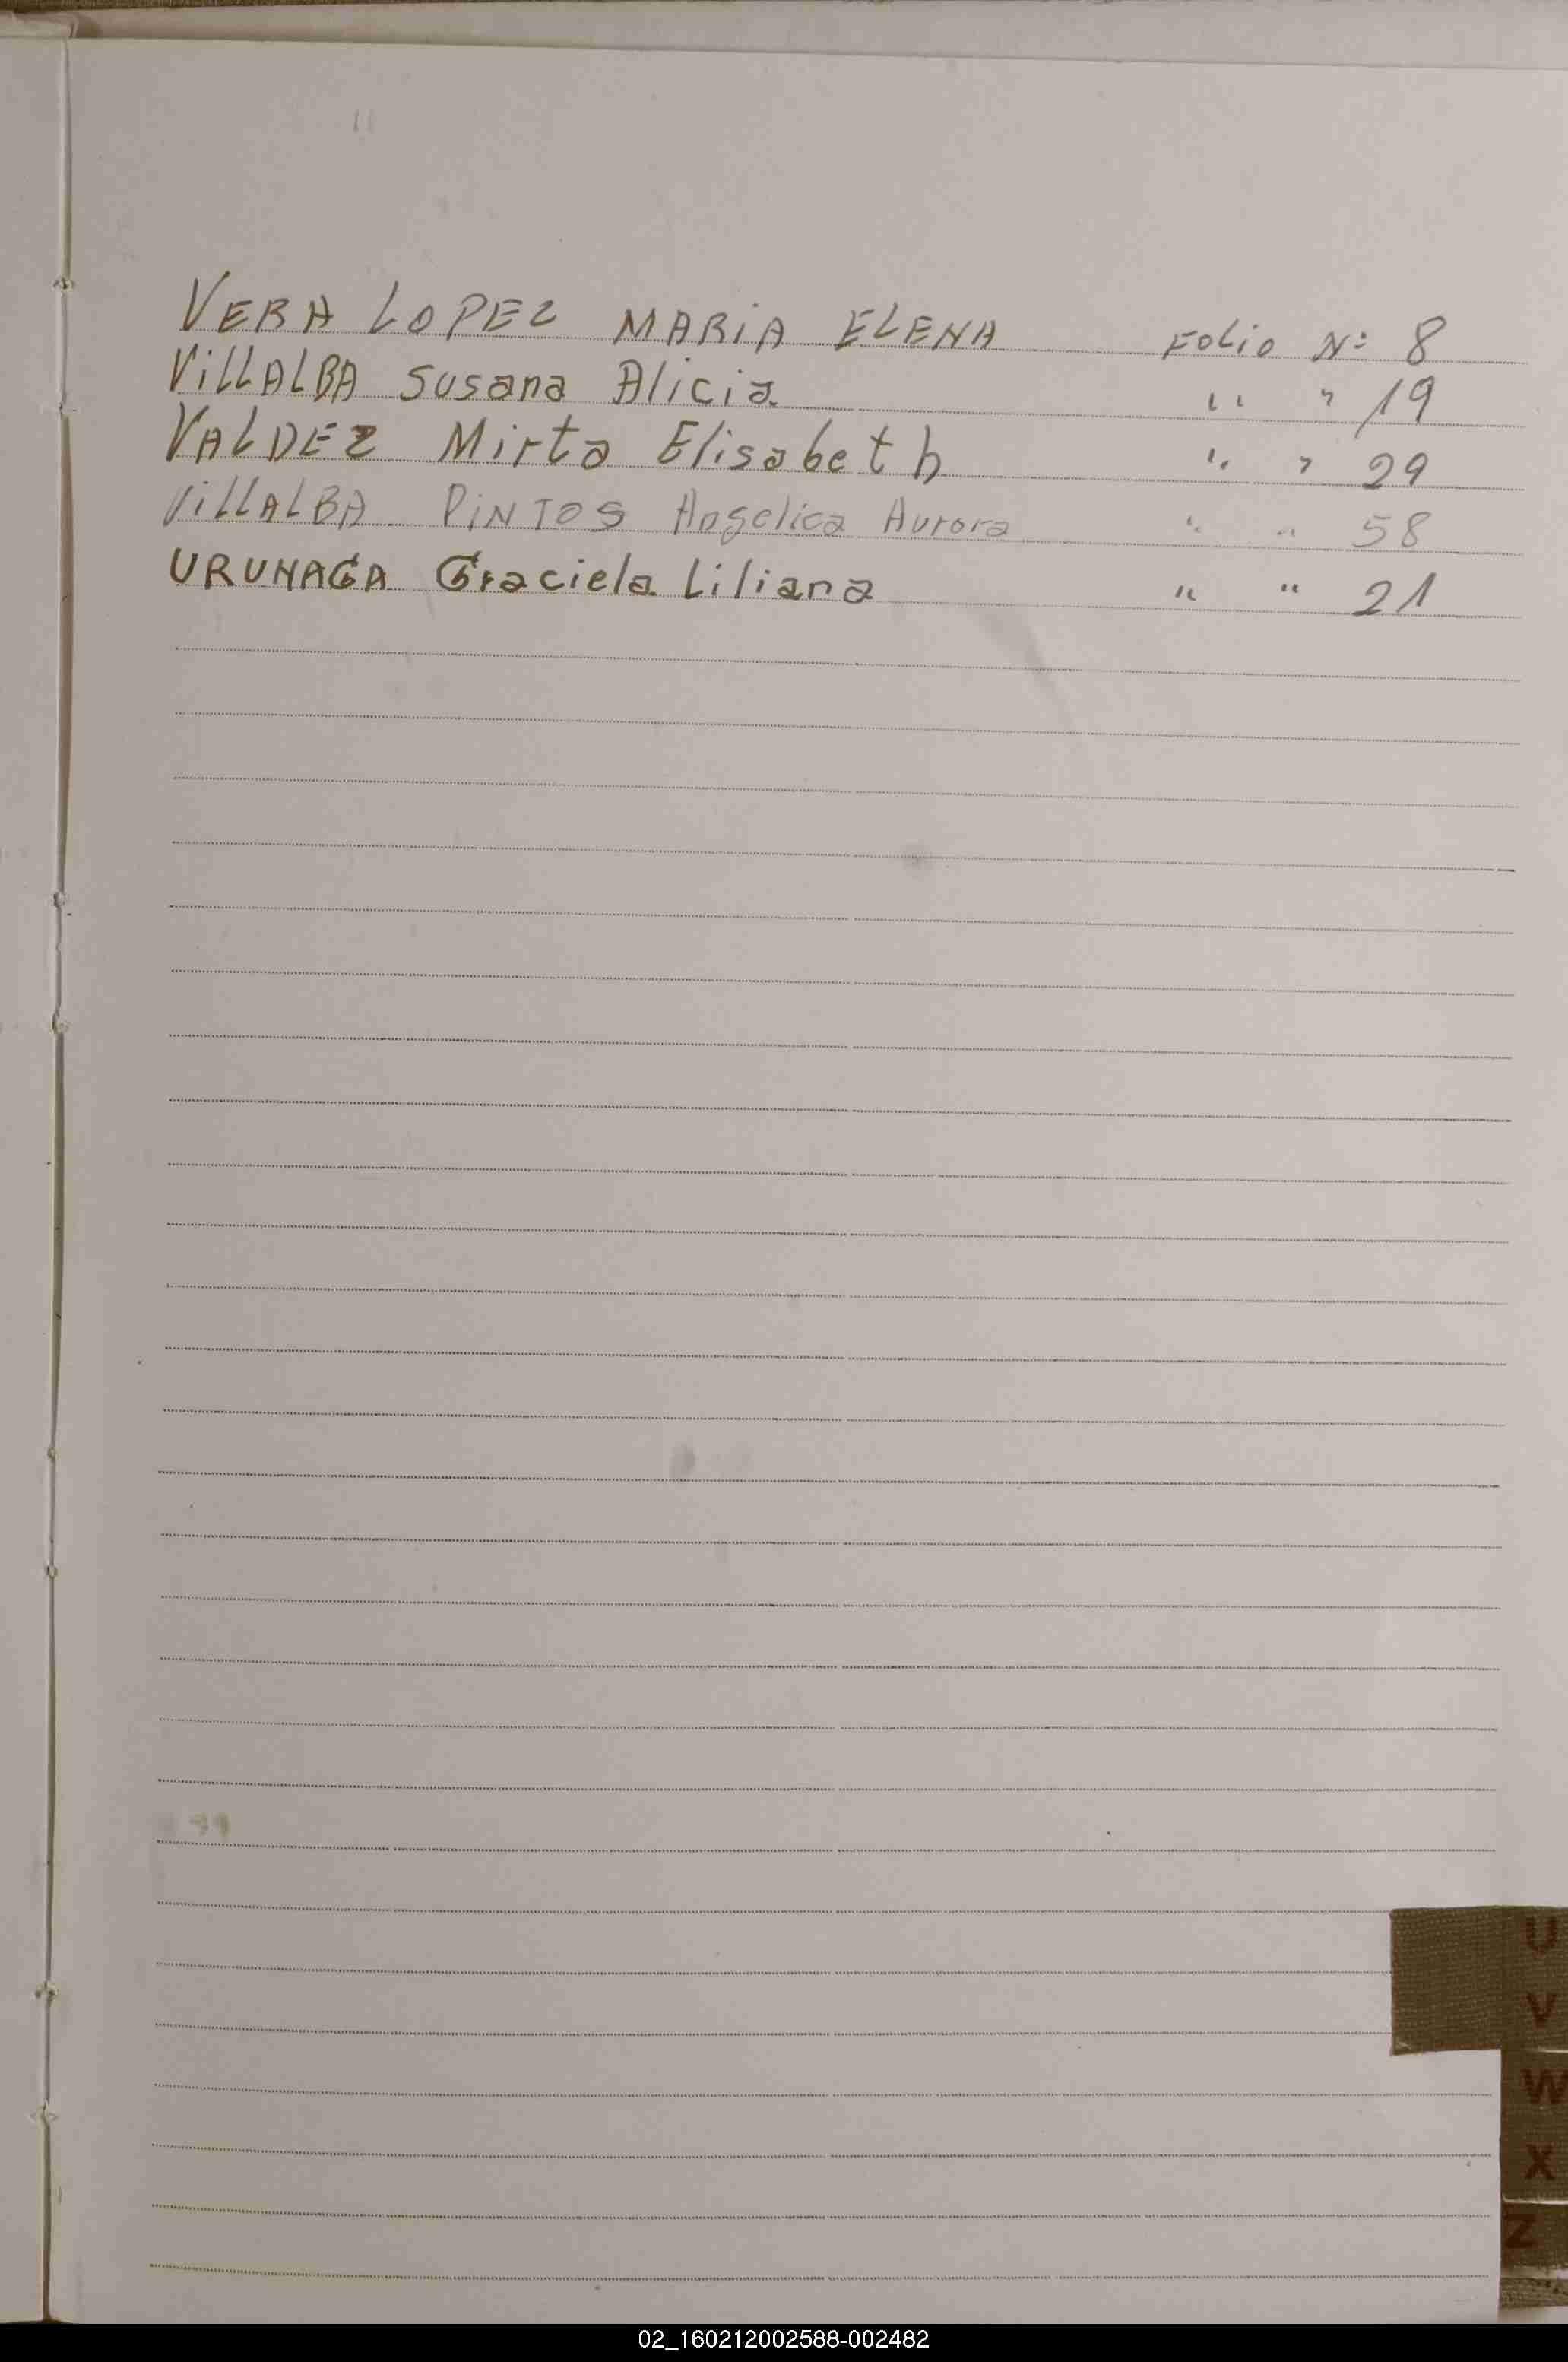 VERA LOPEZ MARIA ELENA Folio Nº 8
VillALBA Susana Alicia " " 19
VALDEZ Mirta Elisabeth " " 29
VillALBA PiNTOS Angelica Aurora " " 58
URUNAGA Graciela Liliana " " 21
U
V
W
X
Z
02_160212002588-002482